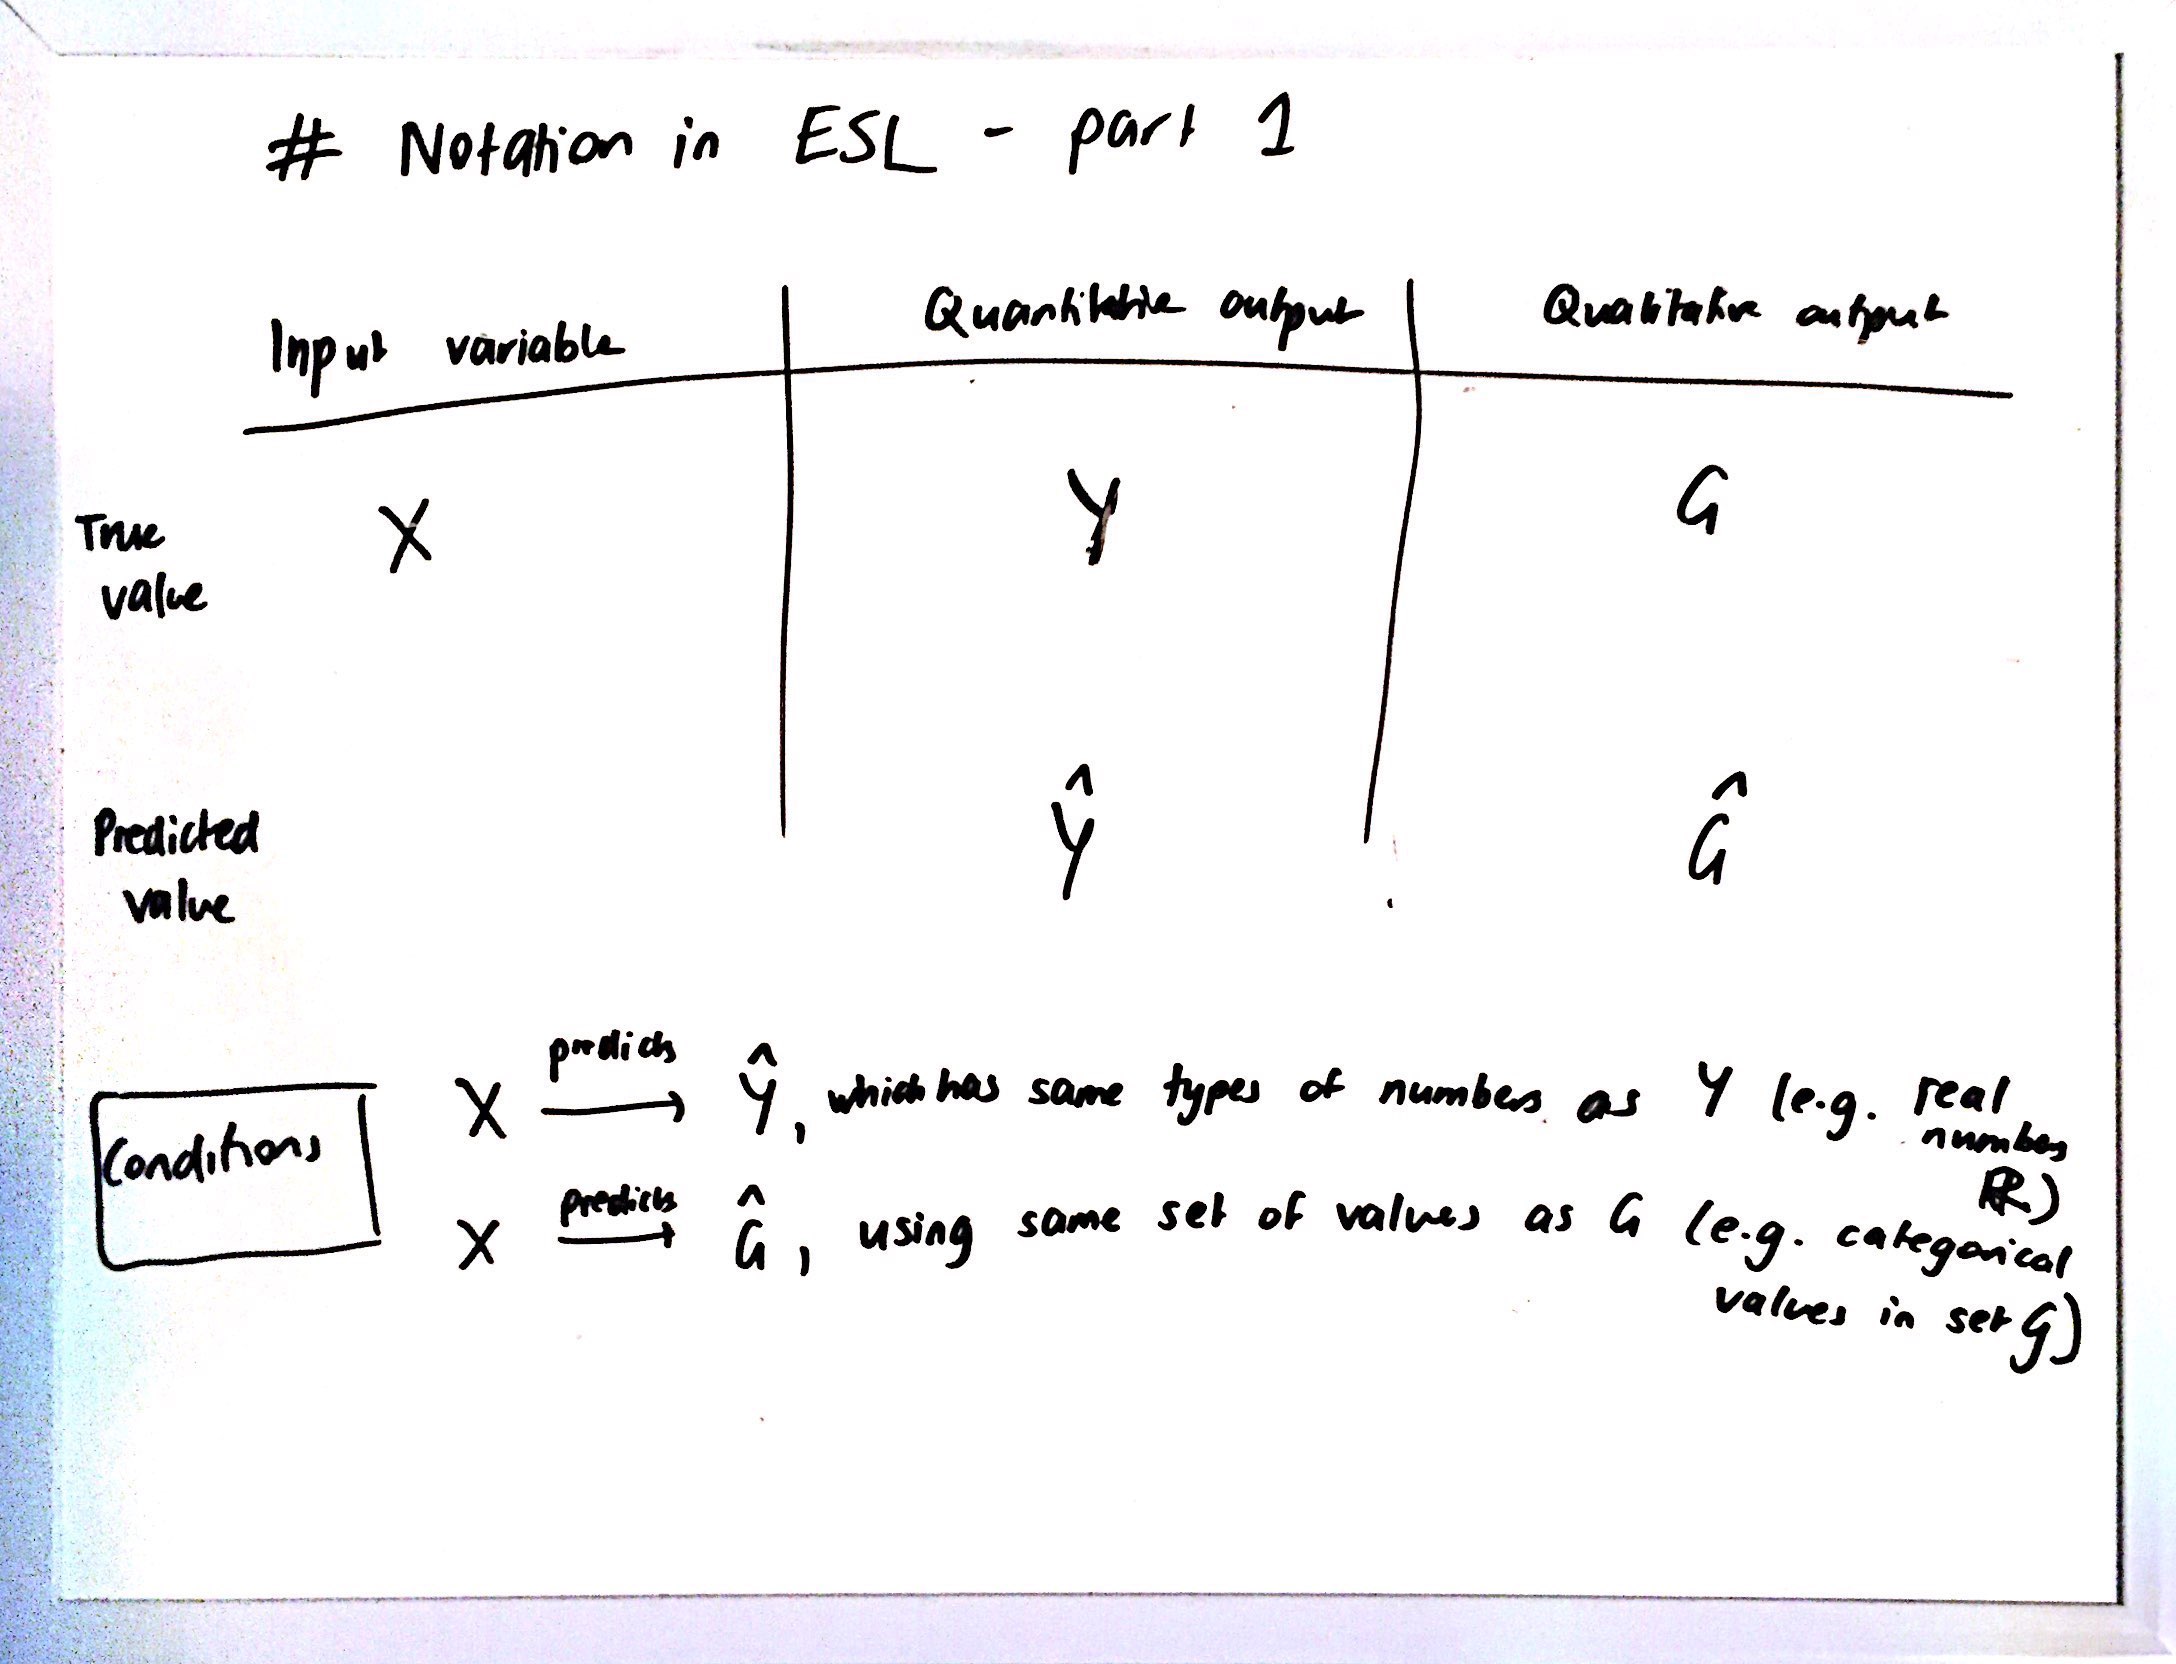 # Notation in ESL - part 1
Input variable Quantitative output Qualitative output
True X Y G
value
Predicted Ŷ Ĝ
value
Conditions
X predicts → Ŷ, which has same types of numbers as Y (e.g. real
numbers
ℝ)
X predicts → Ĝ, using same set of values as G (e.g. categorical
values in set 𝒢)